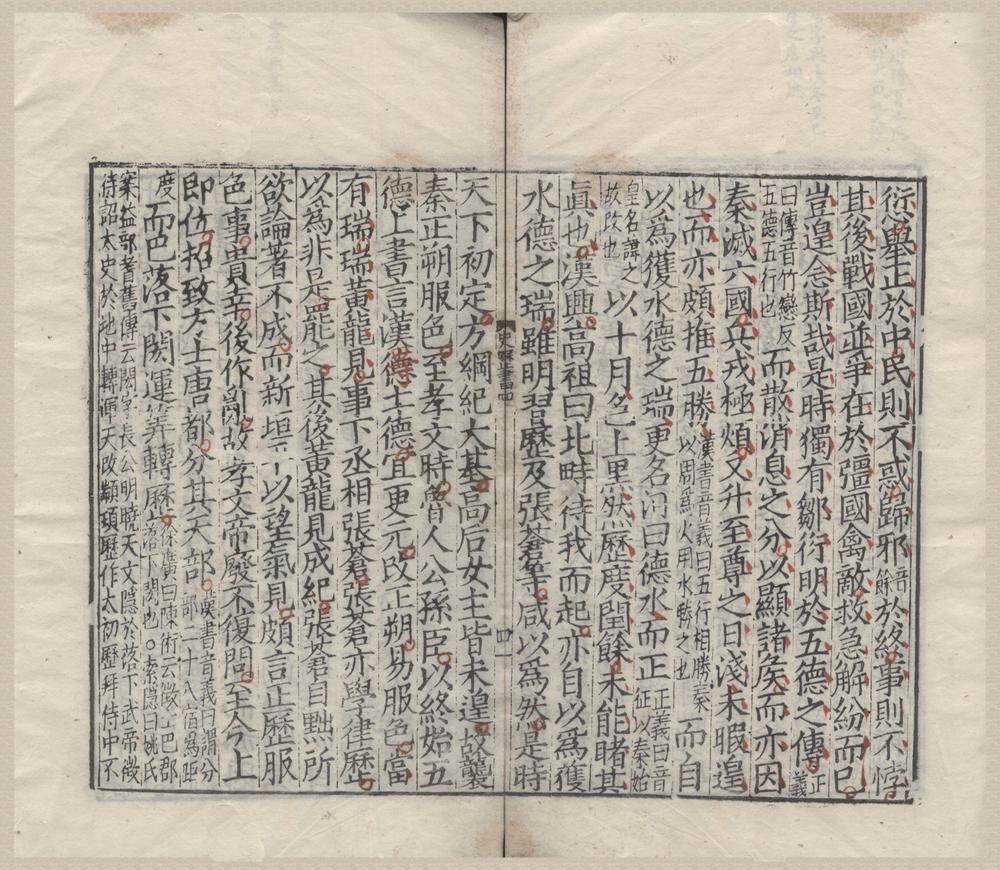 愆舉正於中民則不惑歸邪音餘於終事則不悖
其後戰國並爭在於彊國禽敵救急解紛而已
豈遑念斯哉是時獨有鄒衍明於五德之傳正義
曰傳音竹戀反五德五行也而散消息之分以顯諸侯而亦因
秦滅六國兵戎極煩又升至尊之日淺未暇遑
也而亦頗推五勝漢書音義曰五行相勝秦以周爲火用水勝之也而自
以為獲水德之瑞更名河曰德水而正正義曰音征以秦始
皇名諱之故改也以十月色上黑然歷度閏餘未能睹其
眞也漢興高祖曰北畤待我而起亦自以為獲
水德之瑞雖明習歷及張蒼等咸以爲然是時
史曆書四
四
天下初定方綱紀大基高后女主皆未遑故襲
秦正朔服色至孝文時魯人公孫臣以終始五
德上書言漢得土德宜更元改正朔易服色當
有瑞瑞黃龍見事下丞相張蒼張蒼亦學律歷
以爲非是罷之其後黃龍見成紀張蒼自黜所
欲論著不成而新垣平以望氣見頗言正歷服
色事貴幸後作亂故孝文帝廢不復問至今上
即位招致方士唐都分其天部漢書音義曰謂分部二十八宿爲距
度而巴落下閎運筭轉歷徐廣曰陳術云徵士巴郡落下閎也○索隱曰姚氏
案益部耆舊傳云閎字長公明曉天文隱於落下武帝徵
待詔太史於地中轉渾天改顓頊歷作太初歷拜侍中不